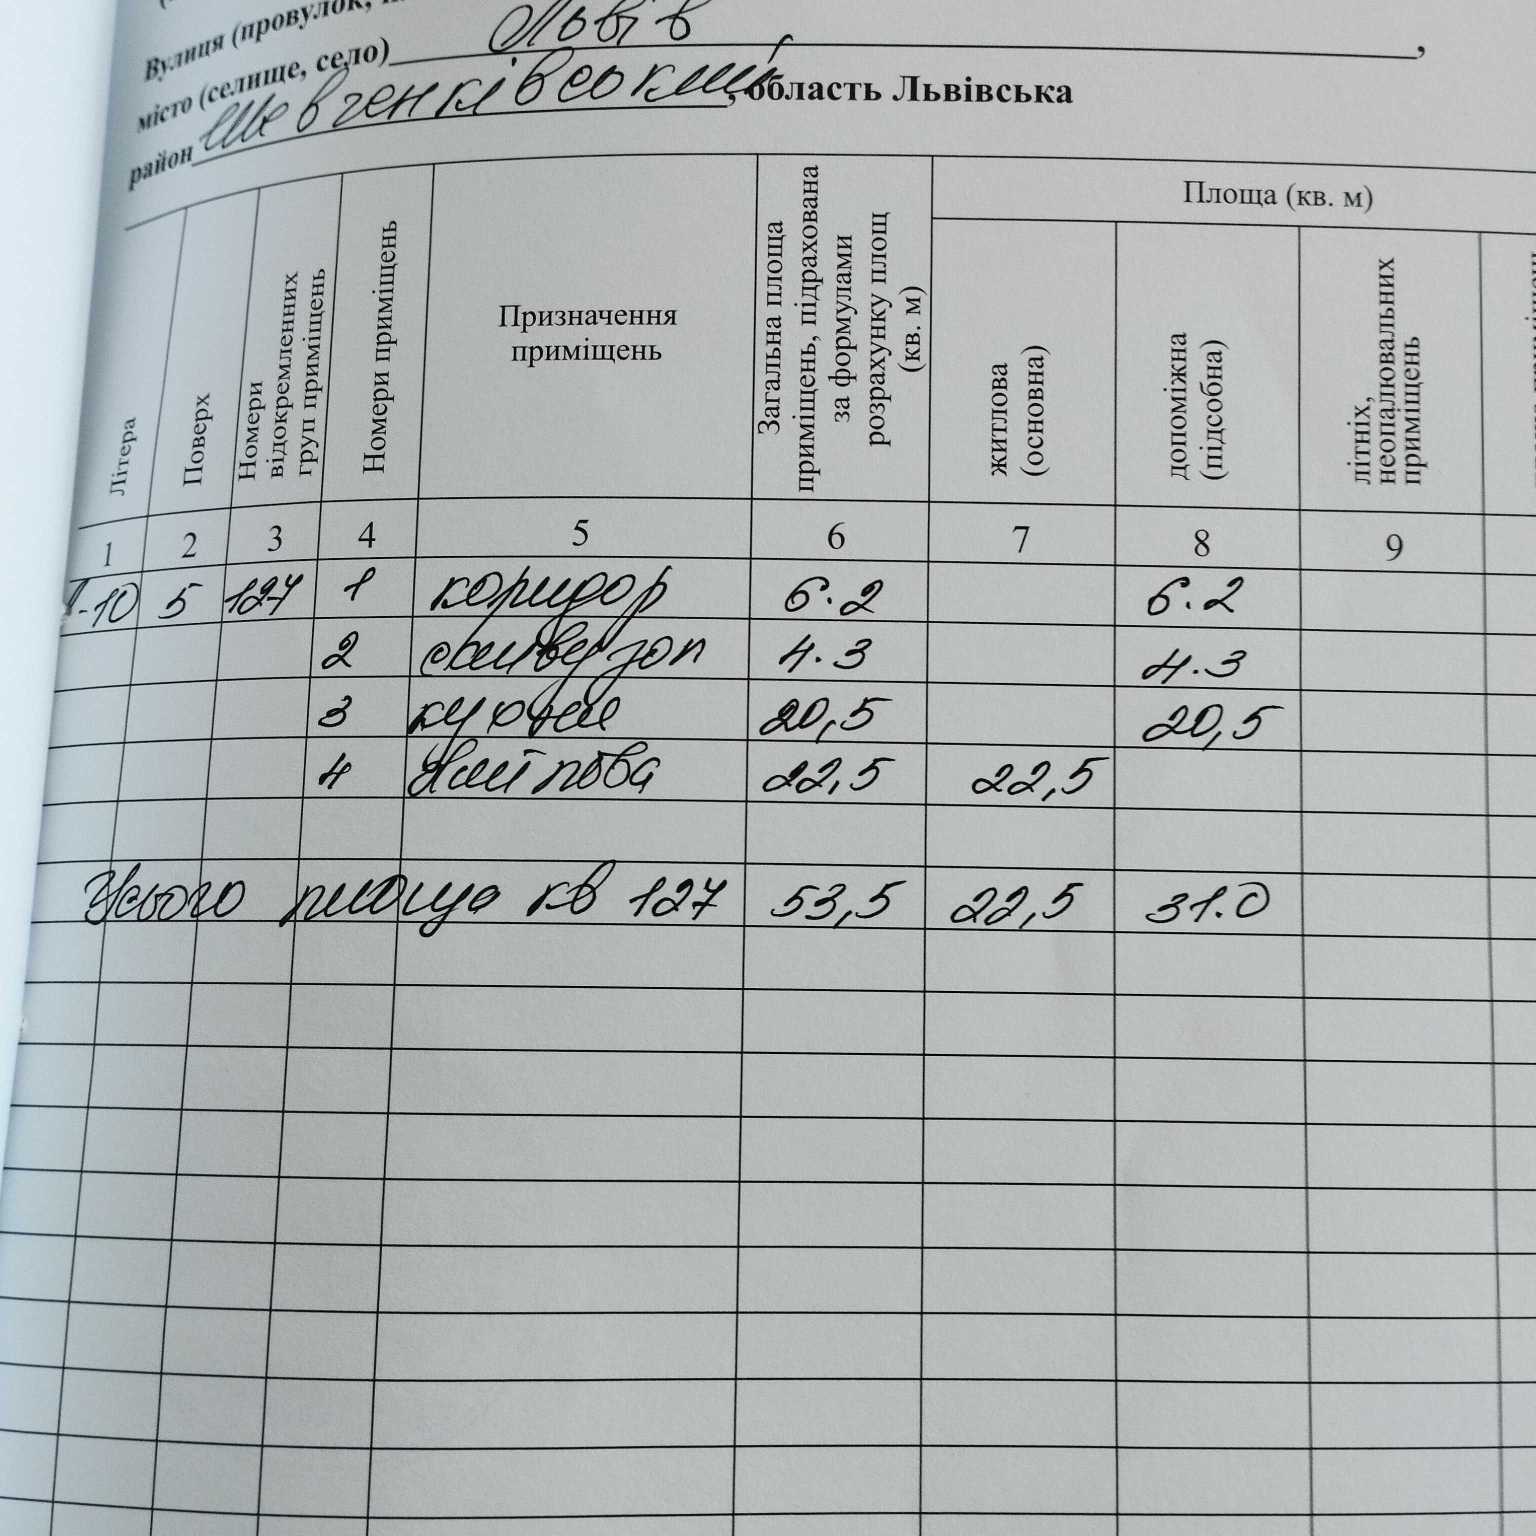 Вулиця (провулок,
місто (селище, село) Львів ,
район Шевченківський, область Львівська
Площа (кв. м)
Літера
Поверх
Номери
відокремленних
груп приміщень
Номери приміщень
Призначення
приміщень
Загальна площа
приміщень, підрахована
за формулами
розрахунку площ
(кв. м)
житлова
(основна)
допоміжна
(підсобна)
літніх,
неопалювальних
приміщень
1 2 3 4 5 6 7 8 9
-10 5 127 1 коридор 6.2 6.2
2 санвузол 4.3 4.3
3 кухня 20,5 20,5
4 житлова 22,5 22,5
Всього площа кв 127 53,5 22,5 31.0